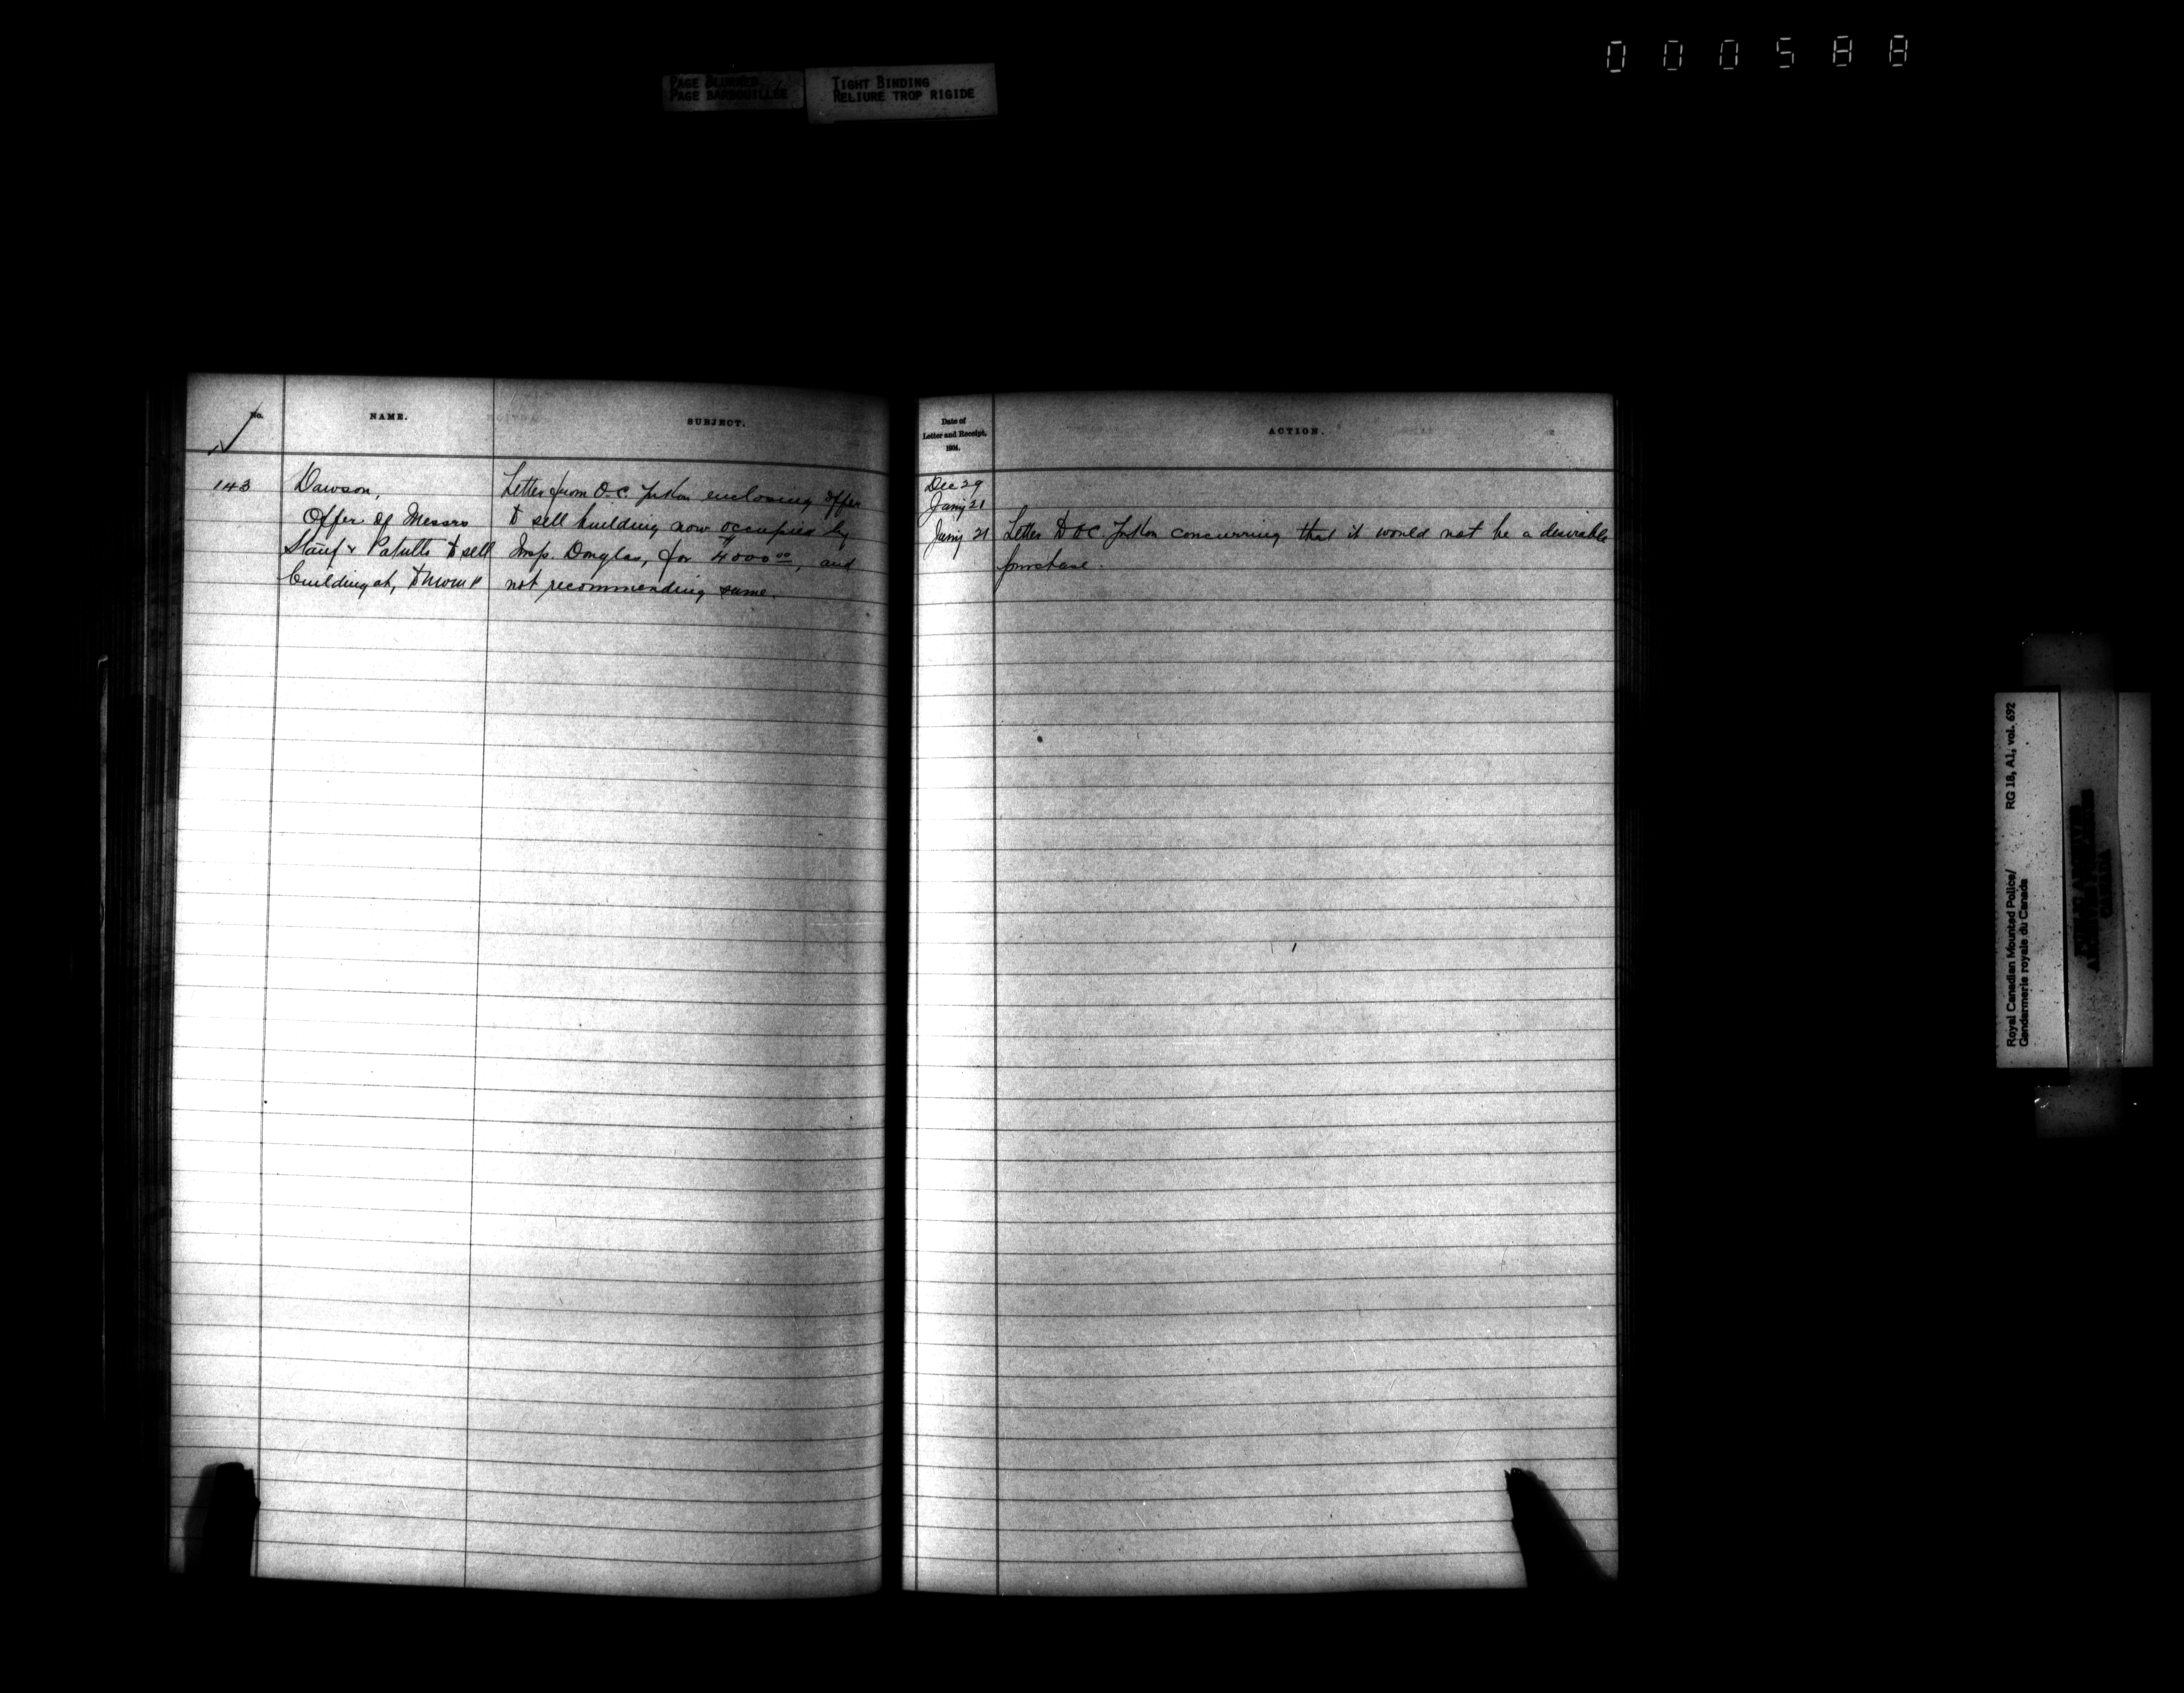 000588
PAGE BLURRED
PAGE BARBOUILLÉE
TIGHT BINDING
RELIURE TROP RIGIDE
No.
NAME.
SUBJECT.
143
Dawson,
Offer of Messrs
Stauf & Patullo to sell
building at, to NWMP
Letter from O.C. Yukon enclosing offer
to sell building now occupied by
Insp. Douglas, for $4000.00, and
not recommending same.
Date of
Letter and Receipt,
1904.
ACTION.
Dec 29
Jany 21
Jany 21 Letter to OC. Yukon concurring that it would not be a desirable
purchase.
Royal Canadian Mounted Police/
Gendarmerie royale du Canada
RG 18, A1, vol. 692
PUBLIC ARCHIVES
ARCHIVES PUBLIQUES
CANADA